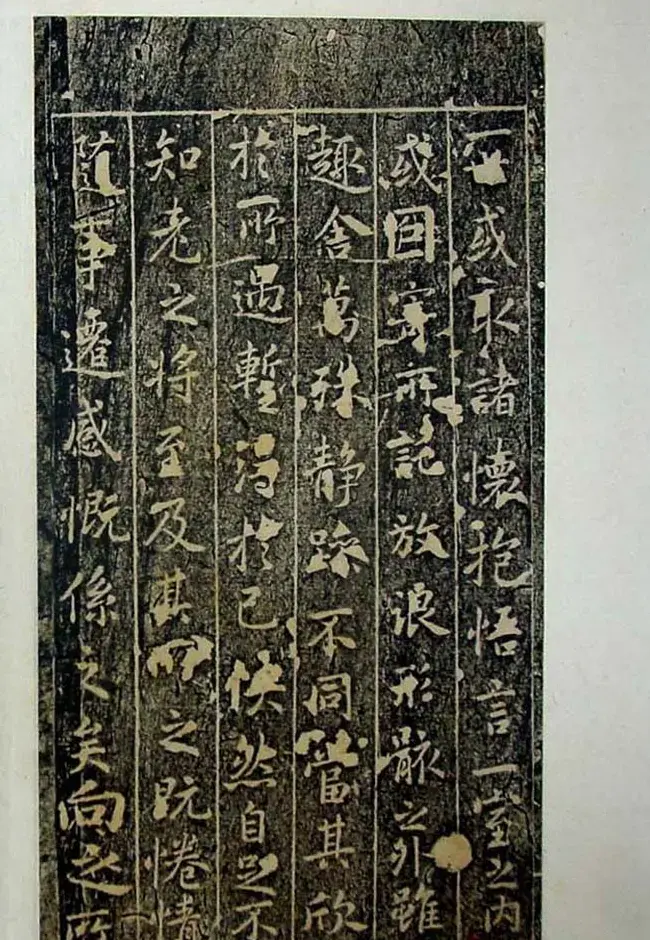 世或取諸懷抱悟言一室之內
或因寄所託放浪形骸之外雖
趣舍萬殊静躁不同當其欣
於所遇暫得於己快然自足不
知老之將至及其所之既惓情
隨事遷感慨係之矣向之所